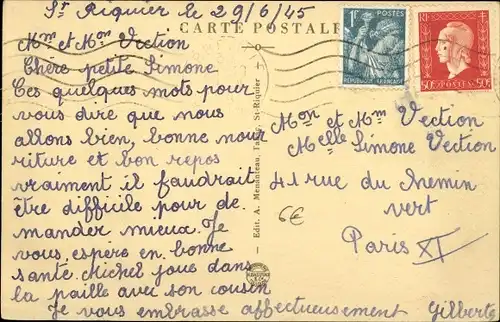 St Riquier le 29/6/45
CARTE POSTALE
Mm et Mon Vection
Chère petite Simone
Ces quelques mots pour
vous dire que nous
allons bien, bonne nour
riture et bon repos
vraiment il faudrait
être difficile pour de
mander mieux. Je
vous espère en bonne
santé. Michel joue dans
la paille avec son cousin
Je vous embrasse affectueusement Gilberte
Edit. A. Menanteau, St-Riquier
1F POSTES
REPUBLIQUE FRANÇAISE
RF
50c 50c
Mon et Mm Vection
Melle Simone Vection
41 rue du Chemin
vert
Paris XI
6€